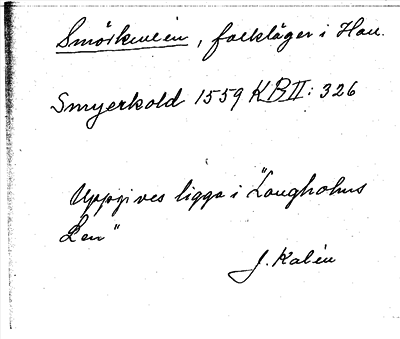 Smörkullen, folkläger i Hall.
Smyerkold 1559 KB II: 326
Uppgives ligga i "Laugholms
Len"
J. Kalén